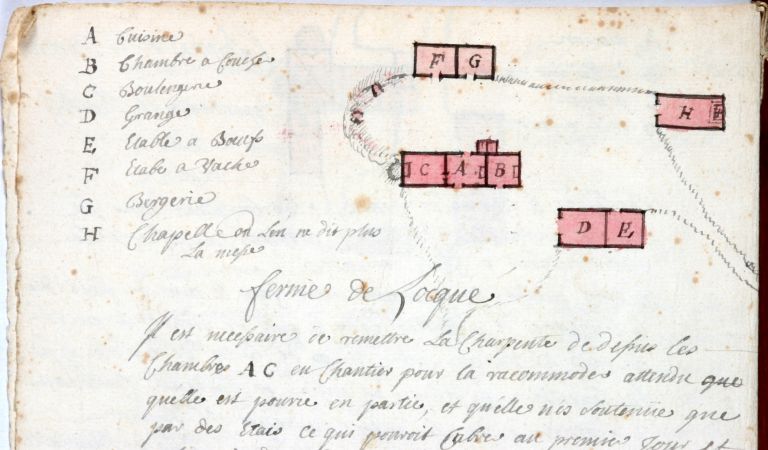 A Cuisine
B Chambre a Couché
C Boulengerie
D Grange
E Etable a Bœufs
F Etabe a Vache
G Bergerie
H Chapelle ou L'on ne dit plus
La messe
F G
H
C A B
D E
ferme de Locqué
Il est necessaire de remettre La Charpente de dessus les
Chambres A C en Chantier pour la racommoder attendu que
quelle est pourie en partie, et quelle n'es soutenüe que
par des Etais ce qui pouroit Culbrer au premier Jour et